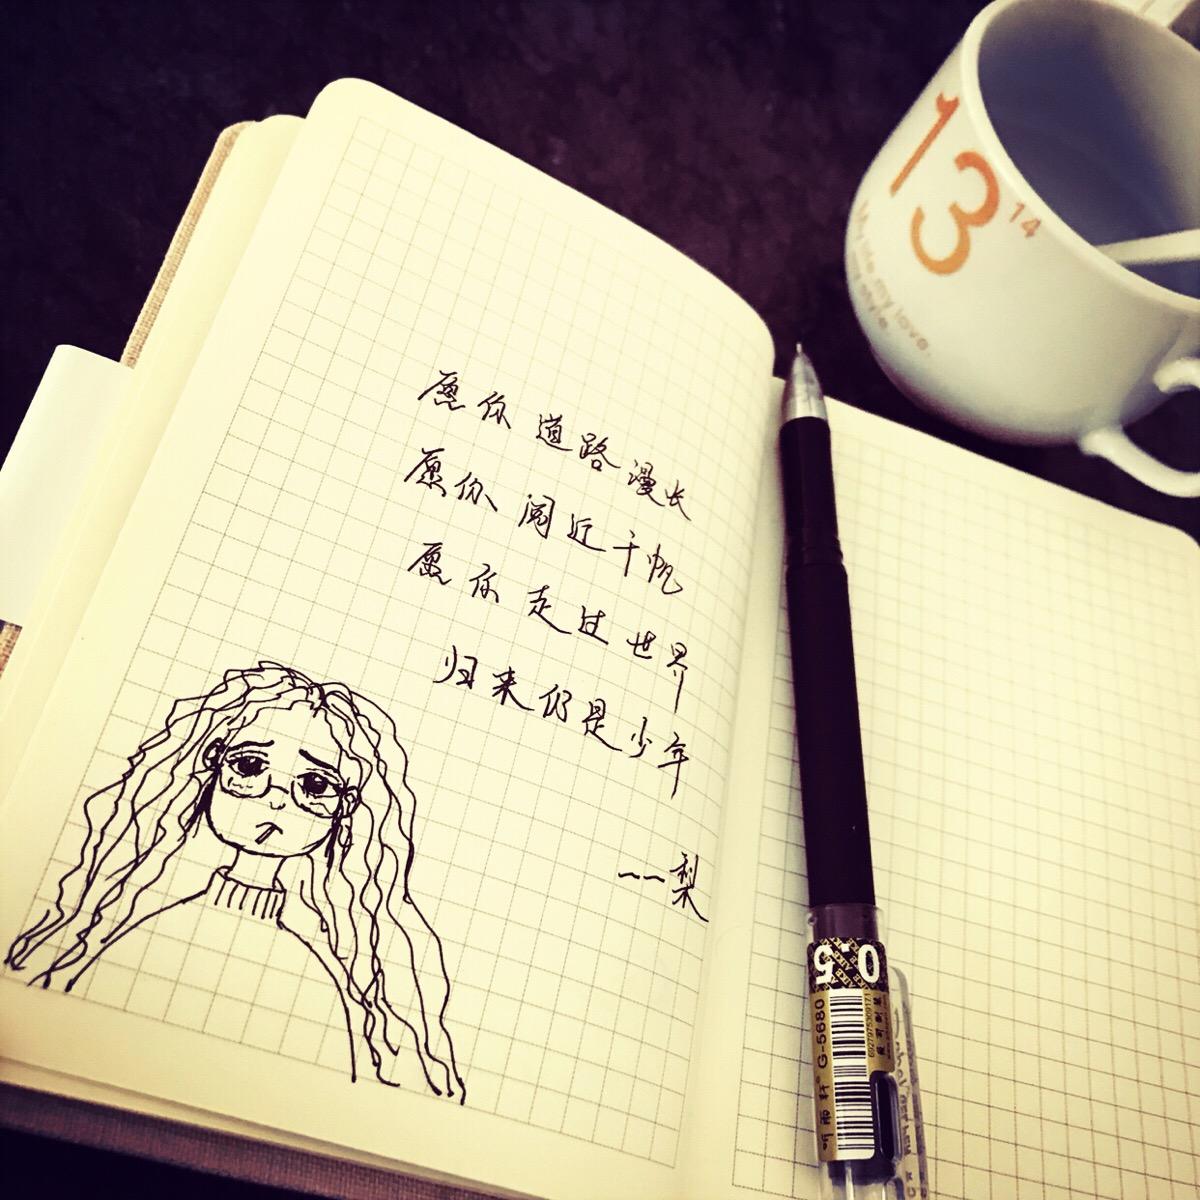 愿你道路漫长
愿你阅近千帆
愿你走过世界
归来仍是少年
——梨
13
14
My life, my love,
my style.
0.5
听雨轩
G-5680
6927975309171